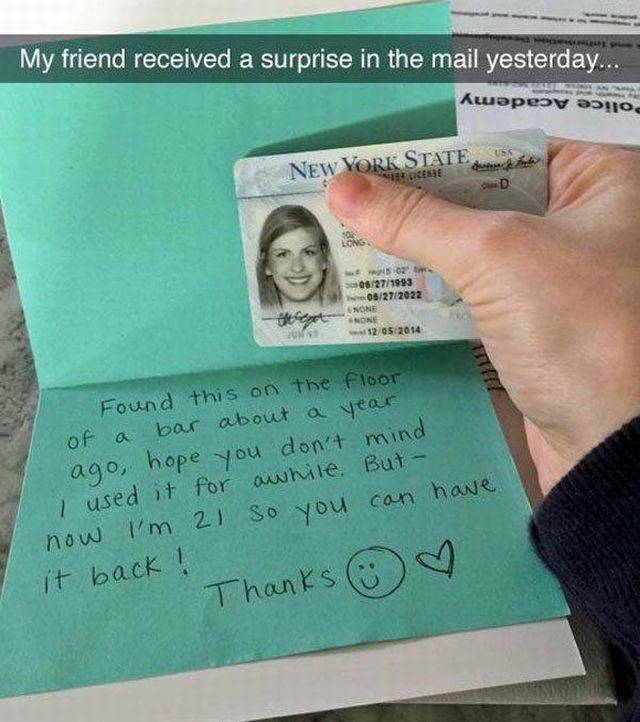 My friend received a surprise in the mail yesterday...
Police Academy
NEW YORK STATE
USA
LICENSE
D
LONG
06/27/1993
06/27/2022
NONE
NONE
12/05/2014
Found this on the floor
of a bar about a year
ago, hope you don't mind
I used it for awhile. But -
now I'm 21 so you can have
it back!
Thanks